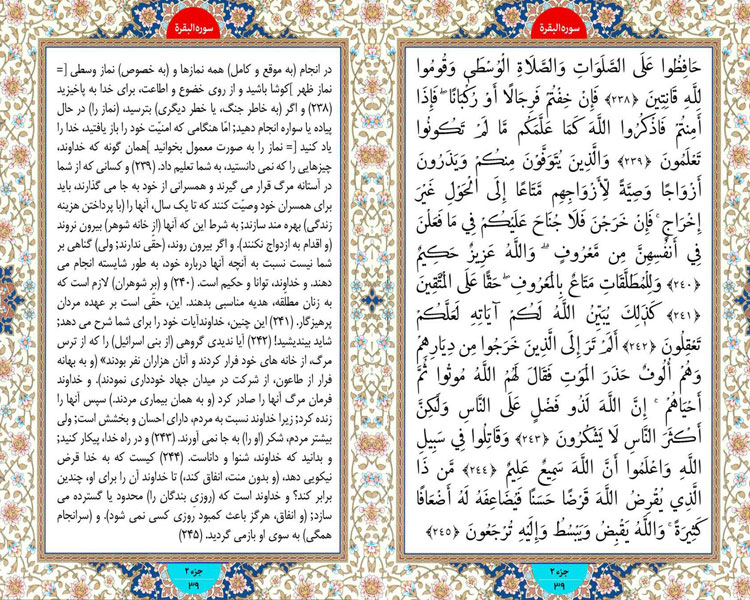 سوره‌البقرة
حَافِظُوا عَلَى الصَّلَوَاتِ وَالصَّلَاةِ الْوُسْطَى وَقُومُوا
لِلَّهِ قَانِتِينَ ﴿۲۳۸﴾ فَإِنْ خِفْتُمْ فَرِجَالًا أَوْ رُكْبَانًا ۖ فَإِذَا
أَمِنْتُمْ فَاذْكُرُوا اللَّهَ كَمَا عَلَّمَكُم مَّا لَمْ تَكُونُوا
تَعْلَمُونَ ﴿۲۳۹﴾ وَالَّذِينَ يُتَوَفَّوْنَ مِنكُمْ وَيَذَرُونَ
أَزْوَاجًا وَصِيَّةً لِّأَزْوَاجِهِم مَّتَاعًا إِلَى الْحَوْلِ غَيْرَ
إِخْرَاجٍ ۚ فَإِنْ خَرَجْنَ فَلَا جُنَاحَ عَلَيْكُمْ فِي مَا فَعَلْنَ
فِي أَنفُسِهِنَّ مِن مَّعْرُوفٍ ۗ وَاللَّهُ عَزِيزٌ حَكِيمٌ
﴿۲۴۰﴾ وَلِلْمُطَلَّقَاتِ مَتَاعٌ بِالْمَعْرُوفِ ۖ حَقًّا عَلَى الْمُتَّقِينَ
﴿۲۴۱﴾ كَذَٰلِكَ يُبَيِّنُ اللَّهُ لَكُمْ آيَاتِهِ لَعَلَّكُمْ
تَعْقِلُونَ ﴿۲۴۲﴾ أَلَمْ تَرَ إِلَى الَّذِينَ خَرَجُوا مِن دِيَارِهِمْ
وَهُمْ أُلُوفٌ حَذَرَ الْمَوْتِ فَقَالَ لَهُمُ اللَّهُ مُوتُوا ثُمَّ
أَحْيَاهُمْ ۚ إِنَّ اللَّهَ لَذُو فَضْلٍ عَلَى النَّاسِ وَلَٰكِنَّ
أَكْثَرَ النَّاسِ لَا يَشْكُرُونَ ﴿۲۴۳﴾ وَقَاتِلُوا فِي سَبِيلِ
اللَّهِ وَاعْلَمُوا أَنَّ اللَّهَ سَمِيعٌ عَلِيمٌ ﴿۲۴۴﴾ مَّن ذَا
الَّذِي يُقْرِضُ اللَّهَ قَرْضًا حَسَنًا فَيُضَاعِفَهُ لَهُ أَضْعَافًا
كَثِيرَةً ۚ وَاللَّهُ يَقْبِضُ وَيَبْسُطُ وَإِلَيْهِ تُرْجَعُونَ ﴿۲۴۵﴾
جزء ۲
۳۹
سوره‌البقرة
در انجام (به موقع و کامل) همه نمازها و (به خصوص) نماز وسطی [=
نماز ظهر ]کوشا باشید و از روی خضوع و اطاعت، برای خدا به پاخیزید
(۲۳۸) و اگر (به خاطر جنگ، یا خطر دیگری) بترسید، (نماز را) در حال
پیاده یا سواره انجام دهید; امّا هنگامی که امنیّت خود را باز یافتید، خدا را
یاد کنید [= نماز را به صورت معمول بخوانید ]همان گونه که خداوند،
چیزهایی را که نمی دانستید، به شما تعلیم داد. (۲۳۹) و کسانی که از شما
در آستانه مرگ قرار می گیرند و همسرانی از خود به جا می گذارند، باید
برای همسران خود وصیّت کنند که تا یک سال، آنها را (با پرداختن هزینه
زندگی) بهره مند سازند; به شرط این که آنها (از خانه شوهر) بیرون نروند
(و اقدام به ازدواج نکنند). و اگر بیرون روند، (حقّی ندارند; ولی) گناهی بر
شما نیست نسبت به آنچه آنها درباره خود، به طور شایسته انجام می
دهند. و خداوند، توانا و حکیم است. (۲۴۰) و (بر شوهران) لازم است که
به زنان مطلّقه، هدیه مناسبی بدهند. این، حقّی است بر عهده مردان
پرهیزگار. (۲۴۱) این چنین، خداوندآیات خود را برای شما شرح می دهد;
شاید بیندیشید! (۲۴۲) آیا ندیدی گروهی (از بنی اسرائیل) را که از ترس
مرگ، از خانه های خود فرار کردند و آنان هزاران نفر بودند» (و به بهانه
فرار از طاعون، از شرکت در میدان جهاد خودداری نمودند). و خداوند
فرمان مرگ آنها را صادر کرد (و به همان بیماری مردند). سپس آنها را
زنده کرد; زیرا خداوند نسبت به مردم، دارای احسان و بخشش است; ولی
بیشتر مردم، شکر (او را) به جا نمی آورند. (۲۴۳) و در راه خدا، پیکار کنید;
و بدانید که خداوند، شنوا و داناست. (۲۴۴) کیست که به خدا قرض
نیکویی دهد، (و بدون منت، انفاق کند،) تا خداوند آن را برای او، چندین
برابر کند؟ و خداوند است که (روزی بندگان را) محدود یا گسترده می
سازد; (و انفاق، هرگز باعث کمبود روزی کسی نمی شود). و (سرانجام
همگی) به سوی او بازمی گردید. (۲۴۵)
جزء ۲
۳۹